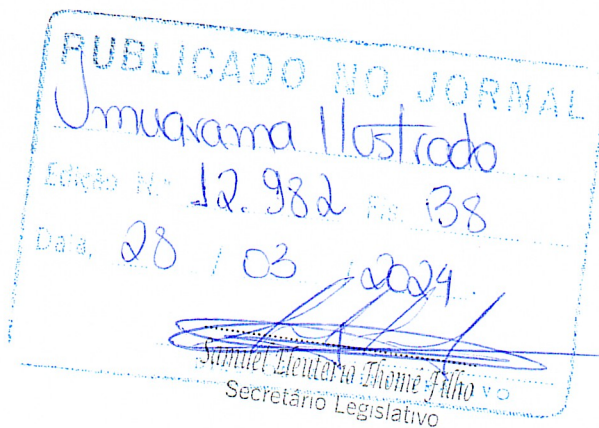 PUBLICADO NO JORNAL
Umuarama Ilustrado
Edição N.º 12.982 Fls. 38
Data, 28 / 03 / 2024.
Samuel Eleuterio Thomé Filho
Secretário Legislativo
VO